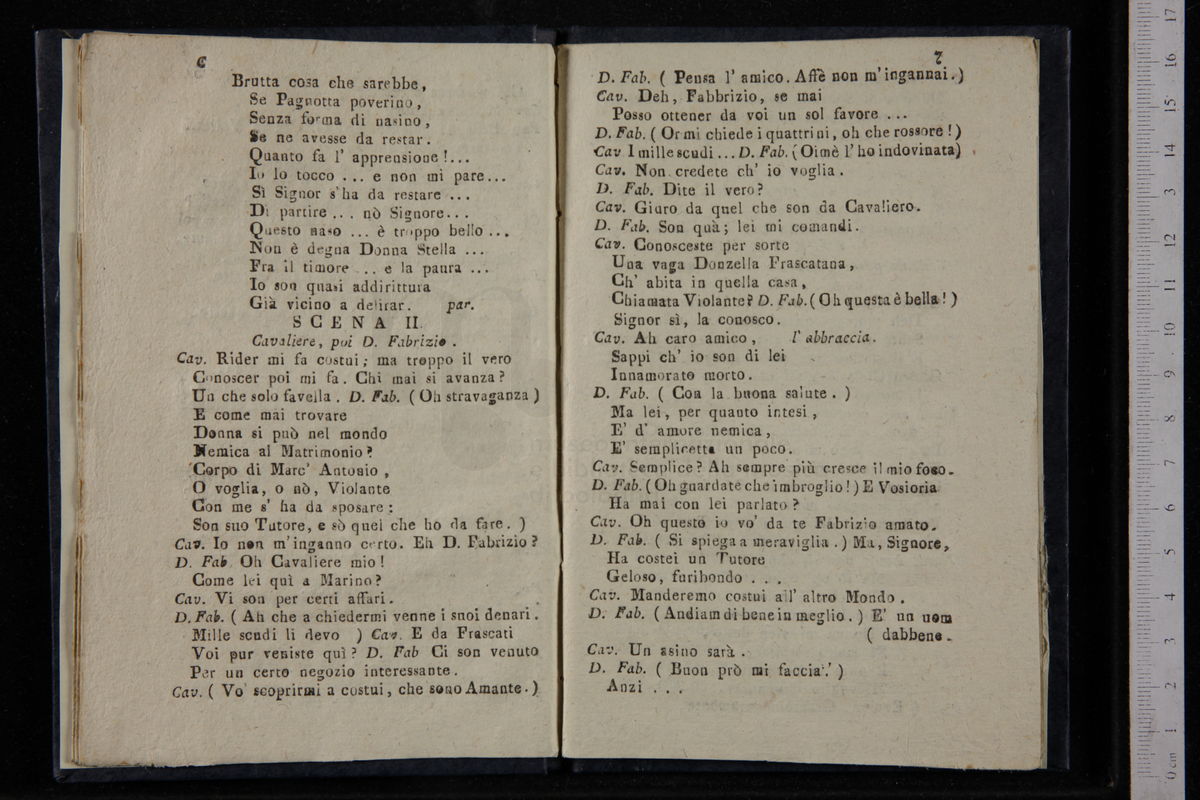 6
Brutta cosa che sarebbe,
Se Pagnotta poverino,
Senza forma di nasino,
Se ne avesse da restar.
Quanto fa l' apprensione !...
Io lo tocco ... e non mi pare...
Sì Signor s'ha da restare ...
Di partire ... nò Signore...
Questo naso ... è troppo bello ...
Non è degna Donna Stella ...
Fra il timore ... e la paura ...
Io son quasi addirittura
Già vicino a delirar. par.
SCENA II.
Cavaliere, poi D. Fabrizio .
Cav. Rider mi fa costui; ma troppo il vero
Conoscer poi mi fa. Chi mai si avanza?
Un che solo favella . D. Fab. ( Oh stravaganza )
E come mai trovare
Donna si può nel mondo
Nemica al Matrimonio?
Corpo di Marc' Antonio ,
O voglia, o nò, Violante
Con me s' ha da sposare :
Son suo Tutore, e sò quel che ho da fare. )
Cav. Io non m'inganno certo. Eh D. Fabrizio?
D. Fab Oh Cavaliere mio!
Come lei quì a Marino?
Cav. Vi son per certi affari.
D. Fab. ( Ah che a chiedermi venne i snoi denari.
Mille scudi li devo ) Cav. E da Frascati
Voi pur veniste quì? D. Fab Ci son venuto
Per un certo negozio interessante.
Cav. ( Vo' scoprirmi a costui, che sono Amante. )
7
D. Fab. ( Pensa l' amico. Affè non m'ingannai. )
Cav. Deh, Fabbrizio, se mai
Posso ottener da voi un sol favore ...
D. Fab. ( Or mi chiede i quattrini, oh che rossore !)
Cav I mille scudi ... D. Fab. ( Oimè l' ho indovinata)
Cav. Non credete ch' io voglia.
D. Fab. Dite il vero?
Cav. Giuro da quel che son da Cavaliero.
D. Fab. Son quà; lei mi comandi.
Cav. Conosceste per sorte
Una vaga Donzella Frascatana,
Ch' abita in quella casa,
Chiamata Violante? D. Fab. ( Oh questa è bella ! )
Signor sì, la conosco.
Cav. Ah caro amico, l' abbraccia.
Sappi ch' io son di lei
Innamorato morto.
D. Fab. ( Con la buona salute. )
Ma lei, per quanto intesi,
E' d' amore nemica,
E' semplicetta un poco.
Cav. Semplice? Ah sempre più cresce il mio foco.
D. Fab. ( Oh guardate che imbroglio ! ) E Vosioria
Ha mai con lei parlato?
Cav. Oh questo io vo' da te Fabrizio amato.
D. Fab. ( Si spiega a meraviglia . ) Ma, Signore,
Ha costei un Tutore
Geloso, furibondo . . .
Cav. Manderemo costui all' altro Mondo .
D. Fab. ( Andiam di bene in meglio . ) E' un uom
( dabbene.
Cav. Un asino sarà .
D. Fab. ( Buon prò mi faccia! )
Anzi . . .
0 cm 1 2 3 4 5 6 7 8 9 10 11 12 13 14 15 16 17